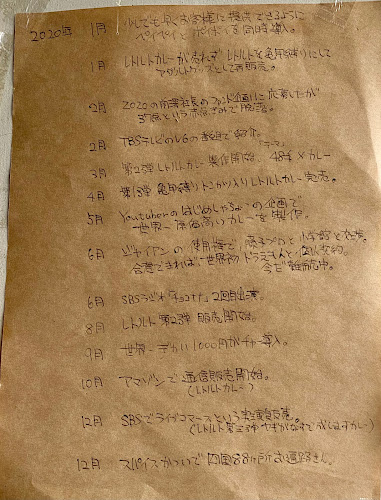 2020年 1月 少しでも早くお客様に提供できるように
ペイペイと を同時導入。
1月 レトルトカレーが売れず レトルトを亀甲縛りにして
アダルトグッズとして再販売。
2月 2020の前澤社長の 企画に応募したが
という で脱落。
2月 TBSテレビのV6の番組で紹介。
3月 第2弾レトルトカレー製作開始。 テーマ 48手×カレー
4月 亀甲縛り レトルトカレー完売。
5月 Youtuberのはじめしゃちょーの企画で
世界一原価高いカレーを製作。
6月 ジャイアンの使用権で、藤子プロと小学館と交渉。
合意できれば"世界初"ドラえもんと個人契約。
今だ難航中。
6月 SBSラジオ 2回目出演。
8月 レトルト第2弾 販売開始。
9月 世界一デカい1000円ガチャ導入。
10月 アマゾンで通信販売開始。
(レトルトカレー)
12月 SBSでライブコマースという実演販売。
(レトルト第三弾 カレー)
12月 スパイスかついで四国88ヶ所お遍路さん。